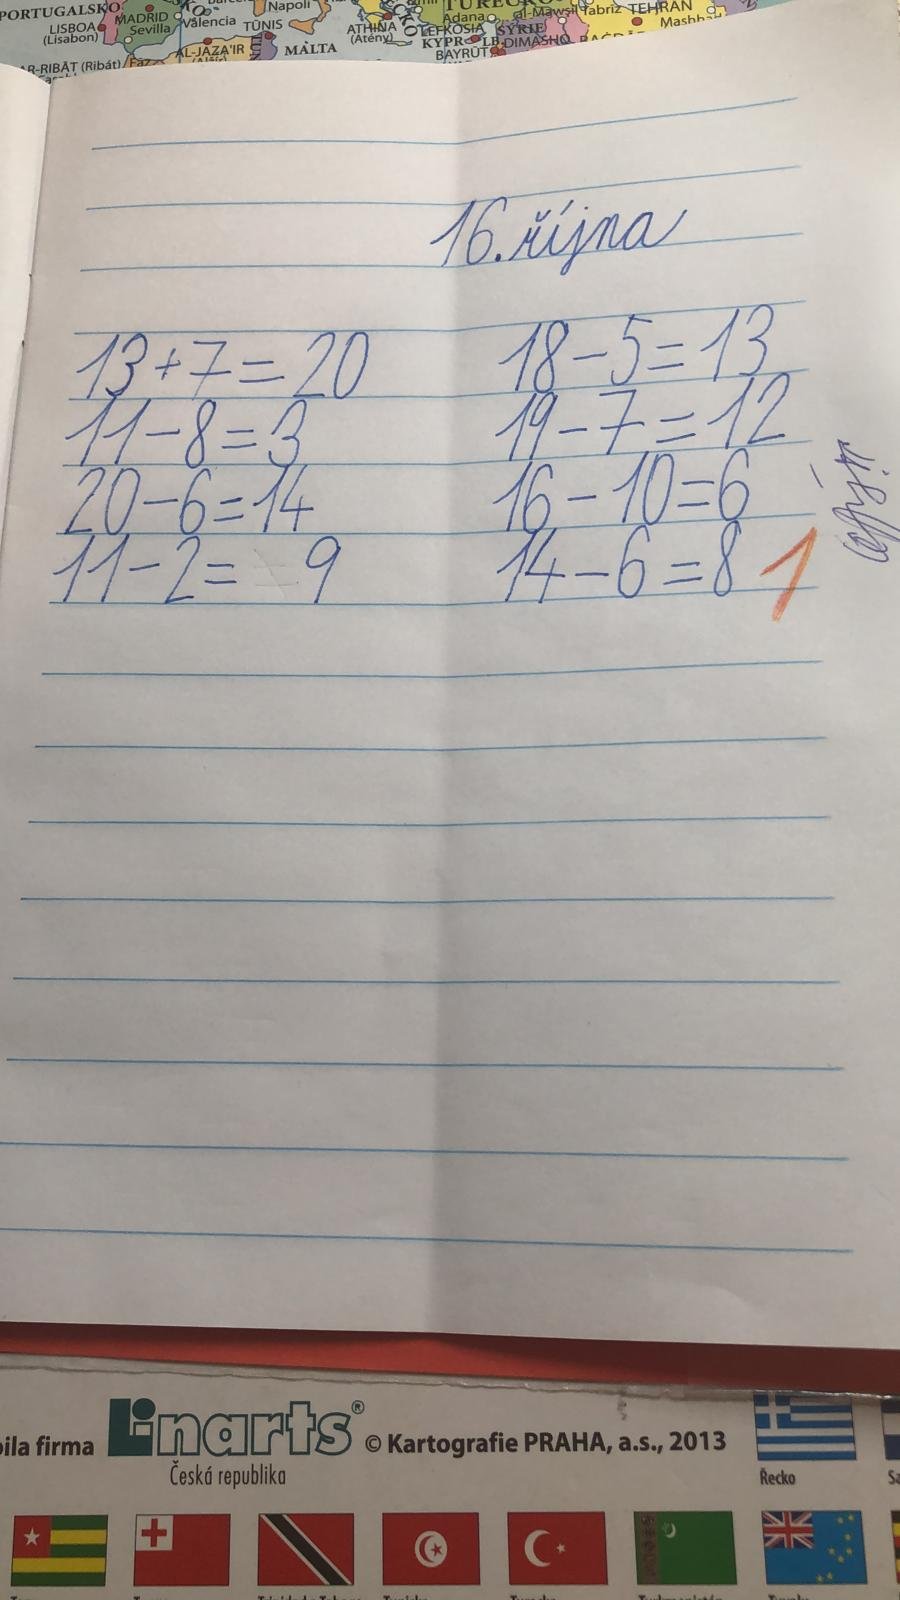 PORTUGALSKO
LISBOA
(Lisabon)
MADRID
Sevilla
Valencia
Napoli
TŪNIS
AL-JAZA'IR
MALTA
AR-RIBĀT (Ribát)
Faz
ATHÍNA
(Atény)
TURECKO
Adana
al-Mawsil
Tabriz
TEHRĀN
Mashhad
LEFKOSÍA
KYPR
SÝRIE
LB.
DIMASHQ
BAYRŪT
16. října
13+7=20
11-8=3
20-6=14
11-2= 9
18-5=13
19-7=12
16-10=6
14-6=8
1
bila firma
Linarts®
Česká republika
© Kartografie PRAHA, a.s., 2013
Řecko